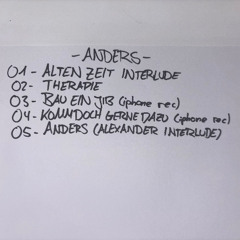 - ANDERS -
01 - ALTEN ZEIT INTERLUDE
02 - THERAPIE
03 - BAU EIN JIB (iphone rec)
04 - KOMM DOCH GERNE DAZU (iphone rec)
05 - ANDERS (ALEXANDER INTERLUDE)